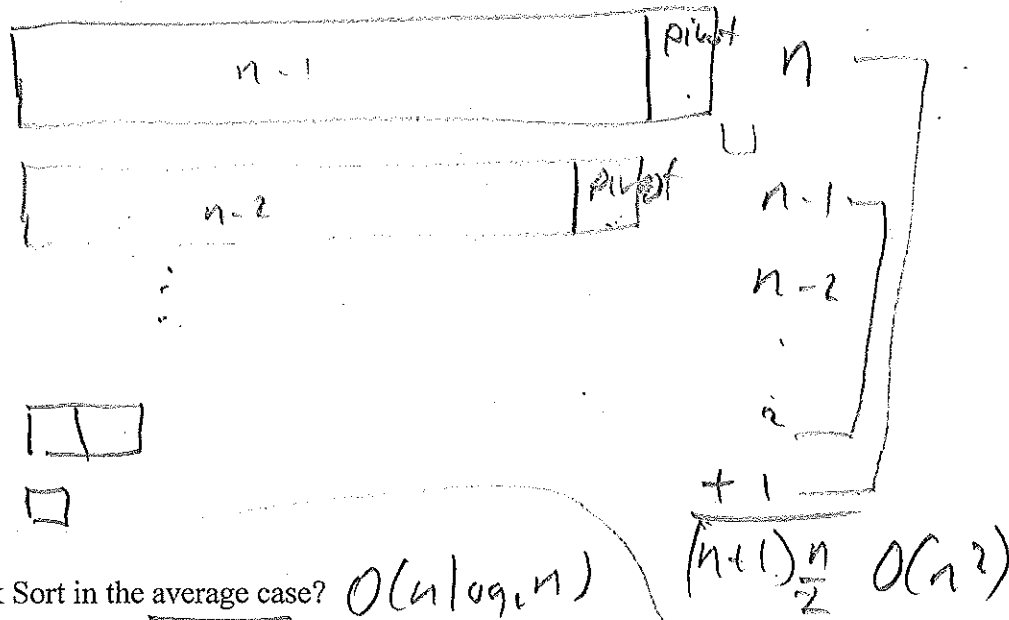 n-1 pivot n
n-2 pivot n-1
n-2
2
+ 1
(n+1) n/2 O(n²)
Sort in the average case? O(n log₂ n)